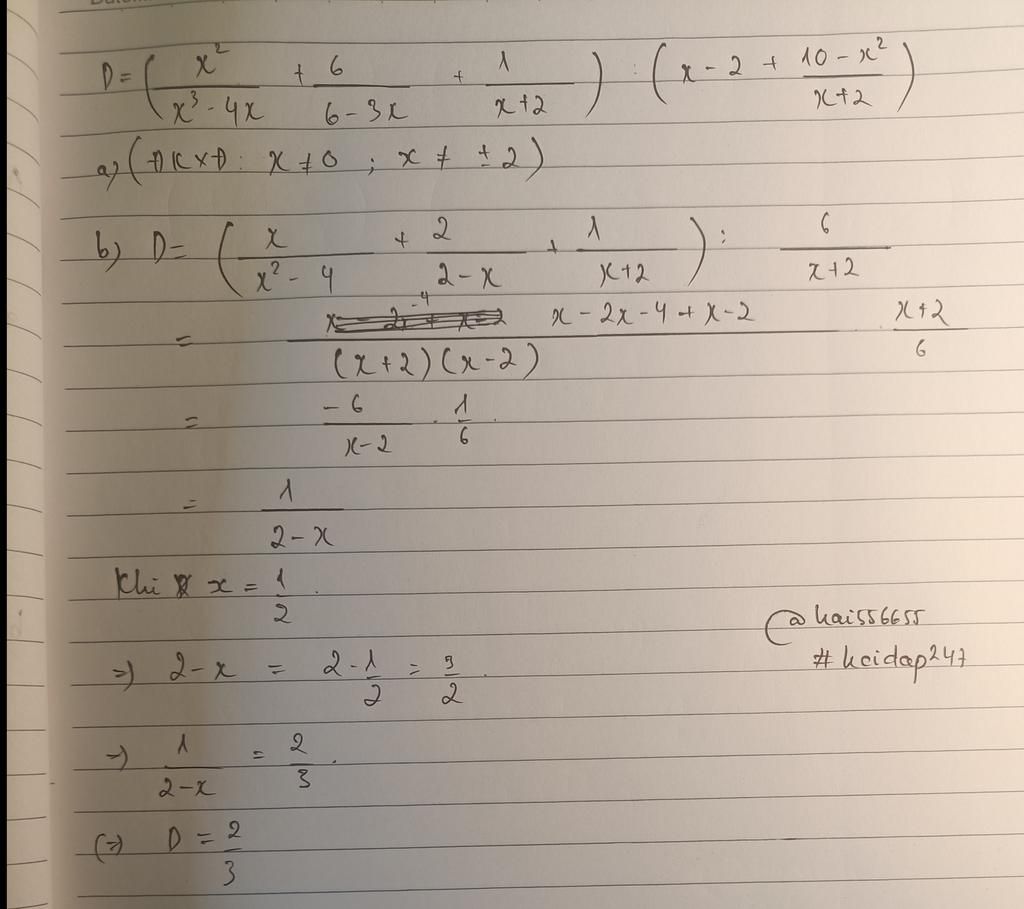 D = ( x²/(x³ - 4x) + 6/(6 - 3x) + 1/(x+2) ) : ( x - 2 + (10 - x²)/(x+2) )
a) (ĐKXĐ: x ≠ 0 ; x ≠ ± 2)
b) D = ( x/(x² - 4) + 2/(2 - x) + 1/(x+2) ) : 6/(x+2)
= (x - 2x - 4 + x - 2)/((x+2)(x-2)) (x+2)/6
= -6/(x-2) . 1/6 .
= 1/(2 - x)
Khi x = 1/2 .
=) 2 - x = 2 - 1/2 = 3/2 .
=) 1/(2-x) = 2/3 .
(=) D = 2/3
@hai556655
#hoidap247